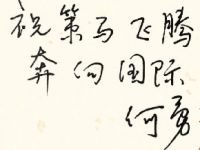 祝策马飞腾
奔向国际
何勇